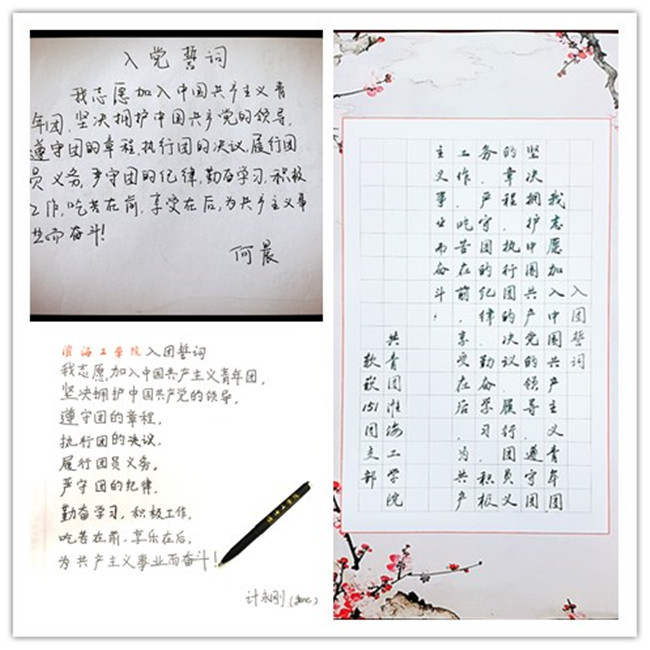 入党誓词
我志愿加入中国共产主义青
年团，坚决拥护中国共产党的领导，
遵守团的章程，执行团的决议，履行团
员义务，严守团的纪律，勤奋学习，积极
工作，吃苦在前，享受在后，为共产主义事
业而奋斗！
何晨
淮海工学院 入团誓词
我志愿，加入中国共产主义青年团，
坚决拥护中国共产党的领导，
遵守团的章程，
执行团的决议，
履行团员义务，
严守团的纪律，
勤奋学习，积极工作，
吃苦在前，享乐在后，
为共产主义事业而奋斗！
计永刚
入团誓词
我志愿加入中国共产主义青年团
坚决拥护中国共产党的领导，遵守团
的章程，执行团的决议，履行团员义
务，严守团的纪律，勤奋学习，积极
工作，吃苦在前，享受在后，为共产
主义事业而奋斗。
共青团淮海工学院
软嵌151团支部